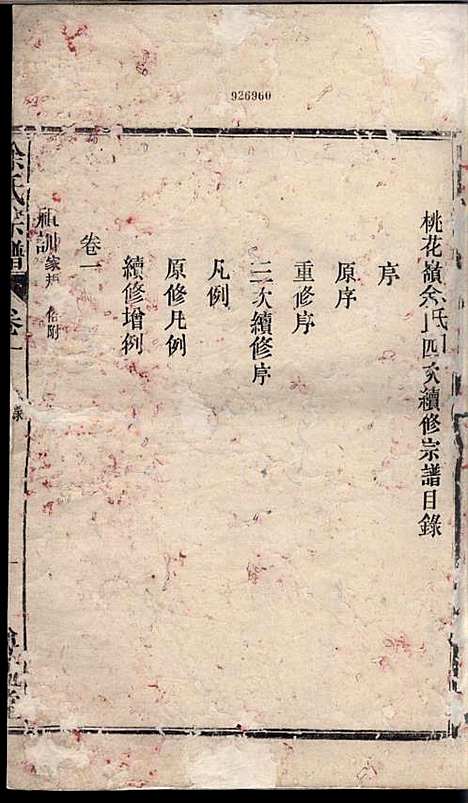 926960
桃花嶺余氏四次續修宗譜目錄
序
原序
重修序
三次續修序
凡例
原修凡例
續修增例
卷一
祖訓 家戒 附
余氏宗譜
卷一